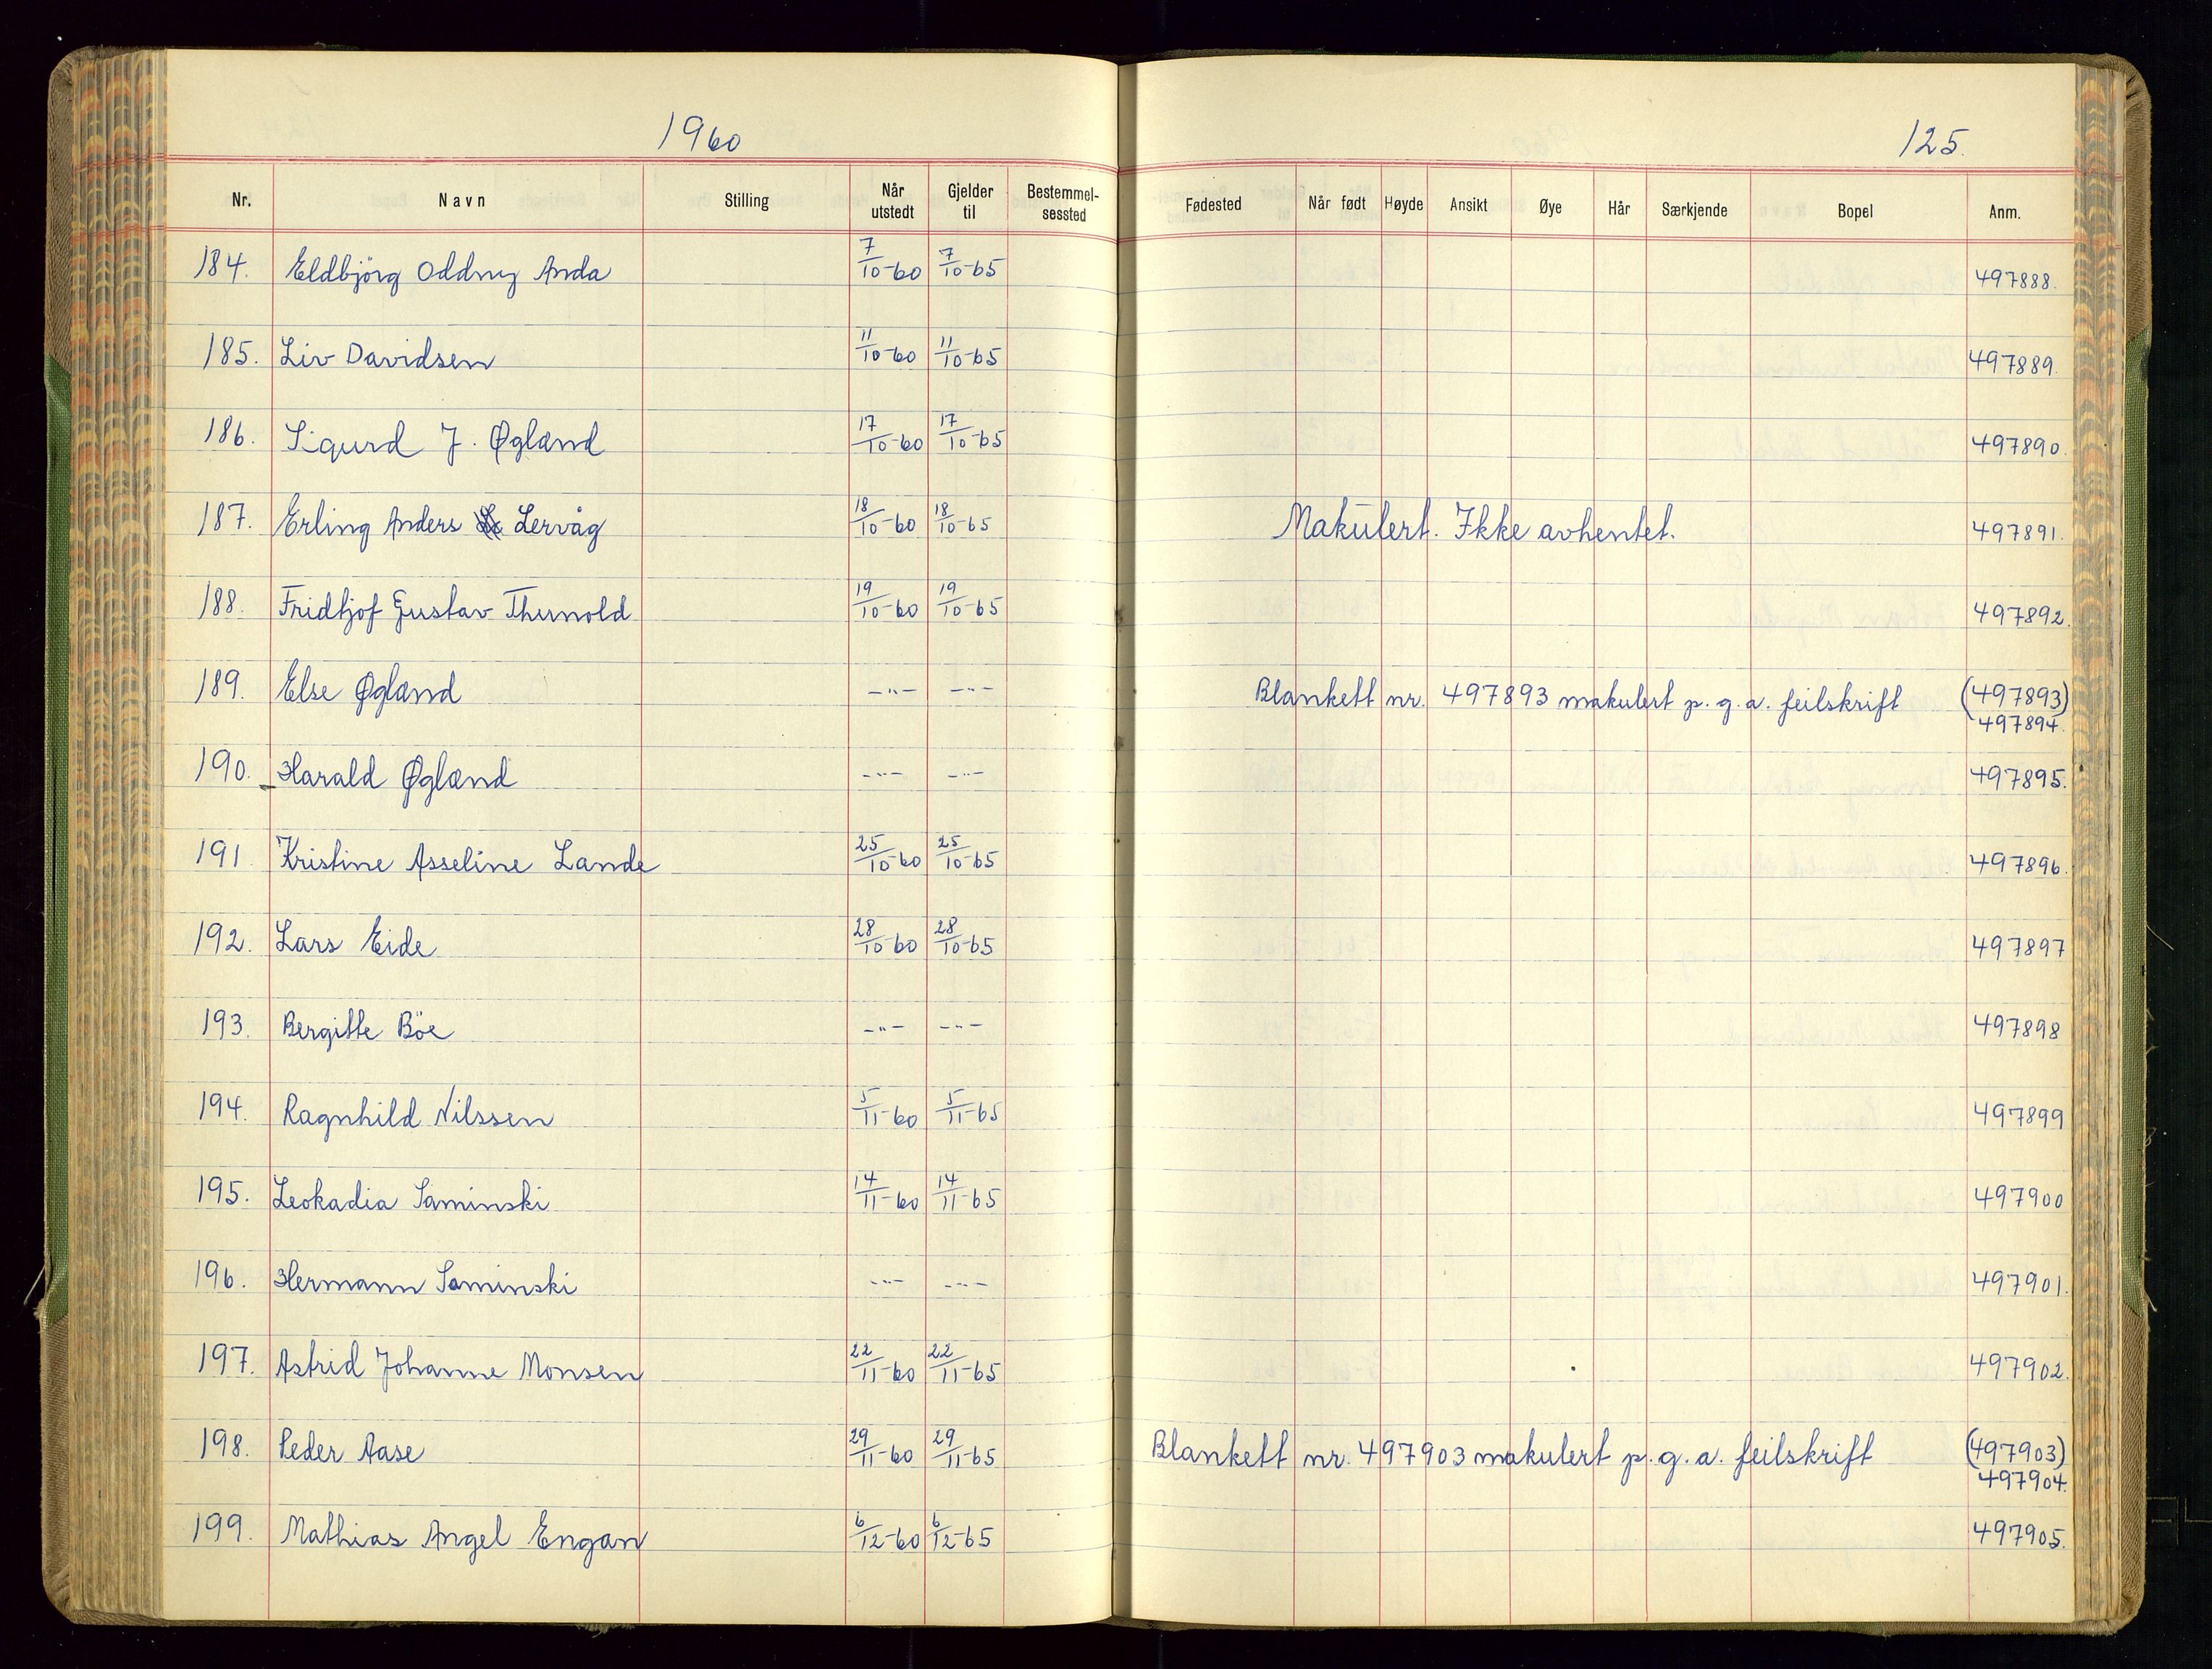 1960
125.
Nr. Navn Stilling Når utstedt Gjelder til Bestemmel-sessted Fødested Når født Høyde Ansikt Øye Hår Særkjende Bopel Anm.
184. Eldbjörg Oddny Anda 7/10-60 7/10-65 497888.
185. Liv Davidsen 11/10-60 11/10-65 497889.
186. Sigurd J. Øgland 17/10-60 17/10-65 497890.
187. Erling Anders Lervåg 18/10-60 18/10-65 Makulert. Ikke avhentet. 497891.
188. Fridtjof Gustav Thunold 19/10-60 19/10-65 497892.
189. Else Øgland -"- -"- Blankett nr. 497893 makulert p.g.a. feilskrift (497893)
497894.
190. Harald Øgland -"- -"- 497895.
191 Kristine Asseline Lande 25/10-60 25/10-65 497896.
192. Lars Eide 28/10-60 28/10-65 497897
193. Bergitte Böe -"- -"- 497898
194. Ragnhild Nilssen 5/11-60 5/11-65 497899
195. Leokadia Saminski 14/11-60 14/11-65 497900
196. Hermann Saminski -"- -"- 497901.
197. Astrid Johanne Monsen 22/11-60 22/11-65 497902.
198. Peder Aase 29/11-60 29/11-65 Blankett nr. 497903 makulert p.g.a. feilskrift (497903)
497904.
199. Mathias Angel Engan 6/12-60 6/12-65 497905.